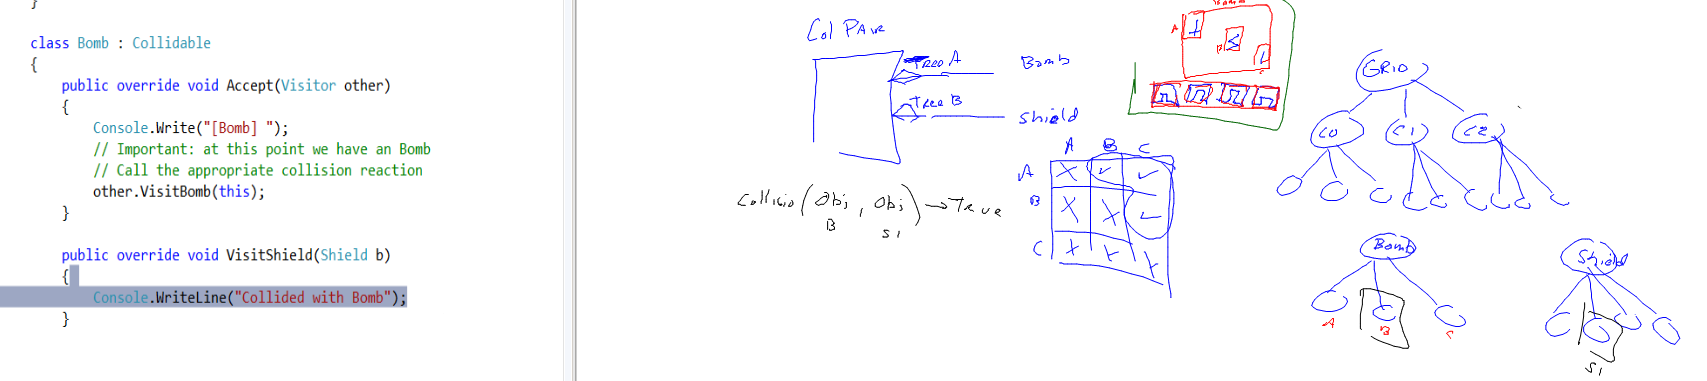 }
class Bomb : Collidable
{
public override void Accept(Visitor other)
{
Console.Write("[Bomb] ");
// Important: at this point we have an Bomb
// Call the appropriate collision reaction
other.VisitBomb(this);
}
public override void VisitShield(Shield b)
{
Console.WriteLine("Collided with Bomb");
}
Col PAIR
Tree A
Bomb
Tree B
Shield
A B C
A
B
C
Collisio(Obj, Obj) → True
B S1
A
B
C
GRID
C0 C1 C2
Bomb
A B C
Shield
S1